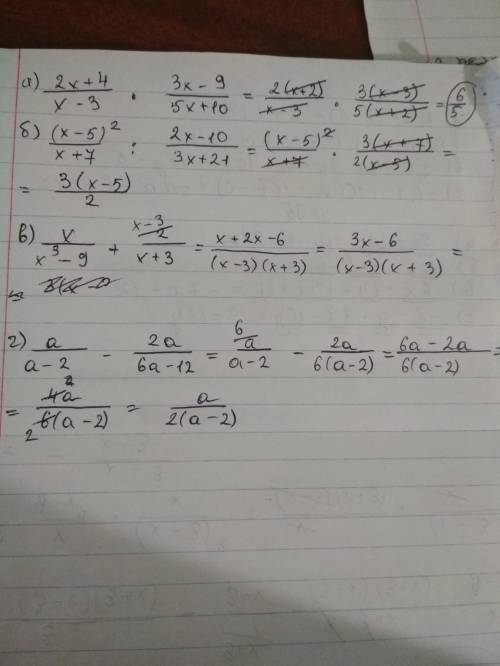 а) (2x+4)/(x-3) · (3x-9)/(5x+10) = 2(x+2)/(x-3) · 3(x-3)/5(x+2) = 6/5
б) (x-5)²/(x+7) : (2x-10)/(3x+21) = (x-5)²/(x+7) · 3(x+7)/2(x-5) =
= 3(x-5)/2
в) x/(x³-9) + 2/(x+3) = (x+2x-6)/((x-3)(x+3)) = (3x-6)/((x-3)(x+3)) =
г) a/(a-2) - 2a/(6a-12) = a/(a-2) - 2a/6(a-2) = (6a-2a)/6(a-2) =
= 4a/6(a-2) = a/2(a-2)